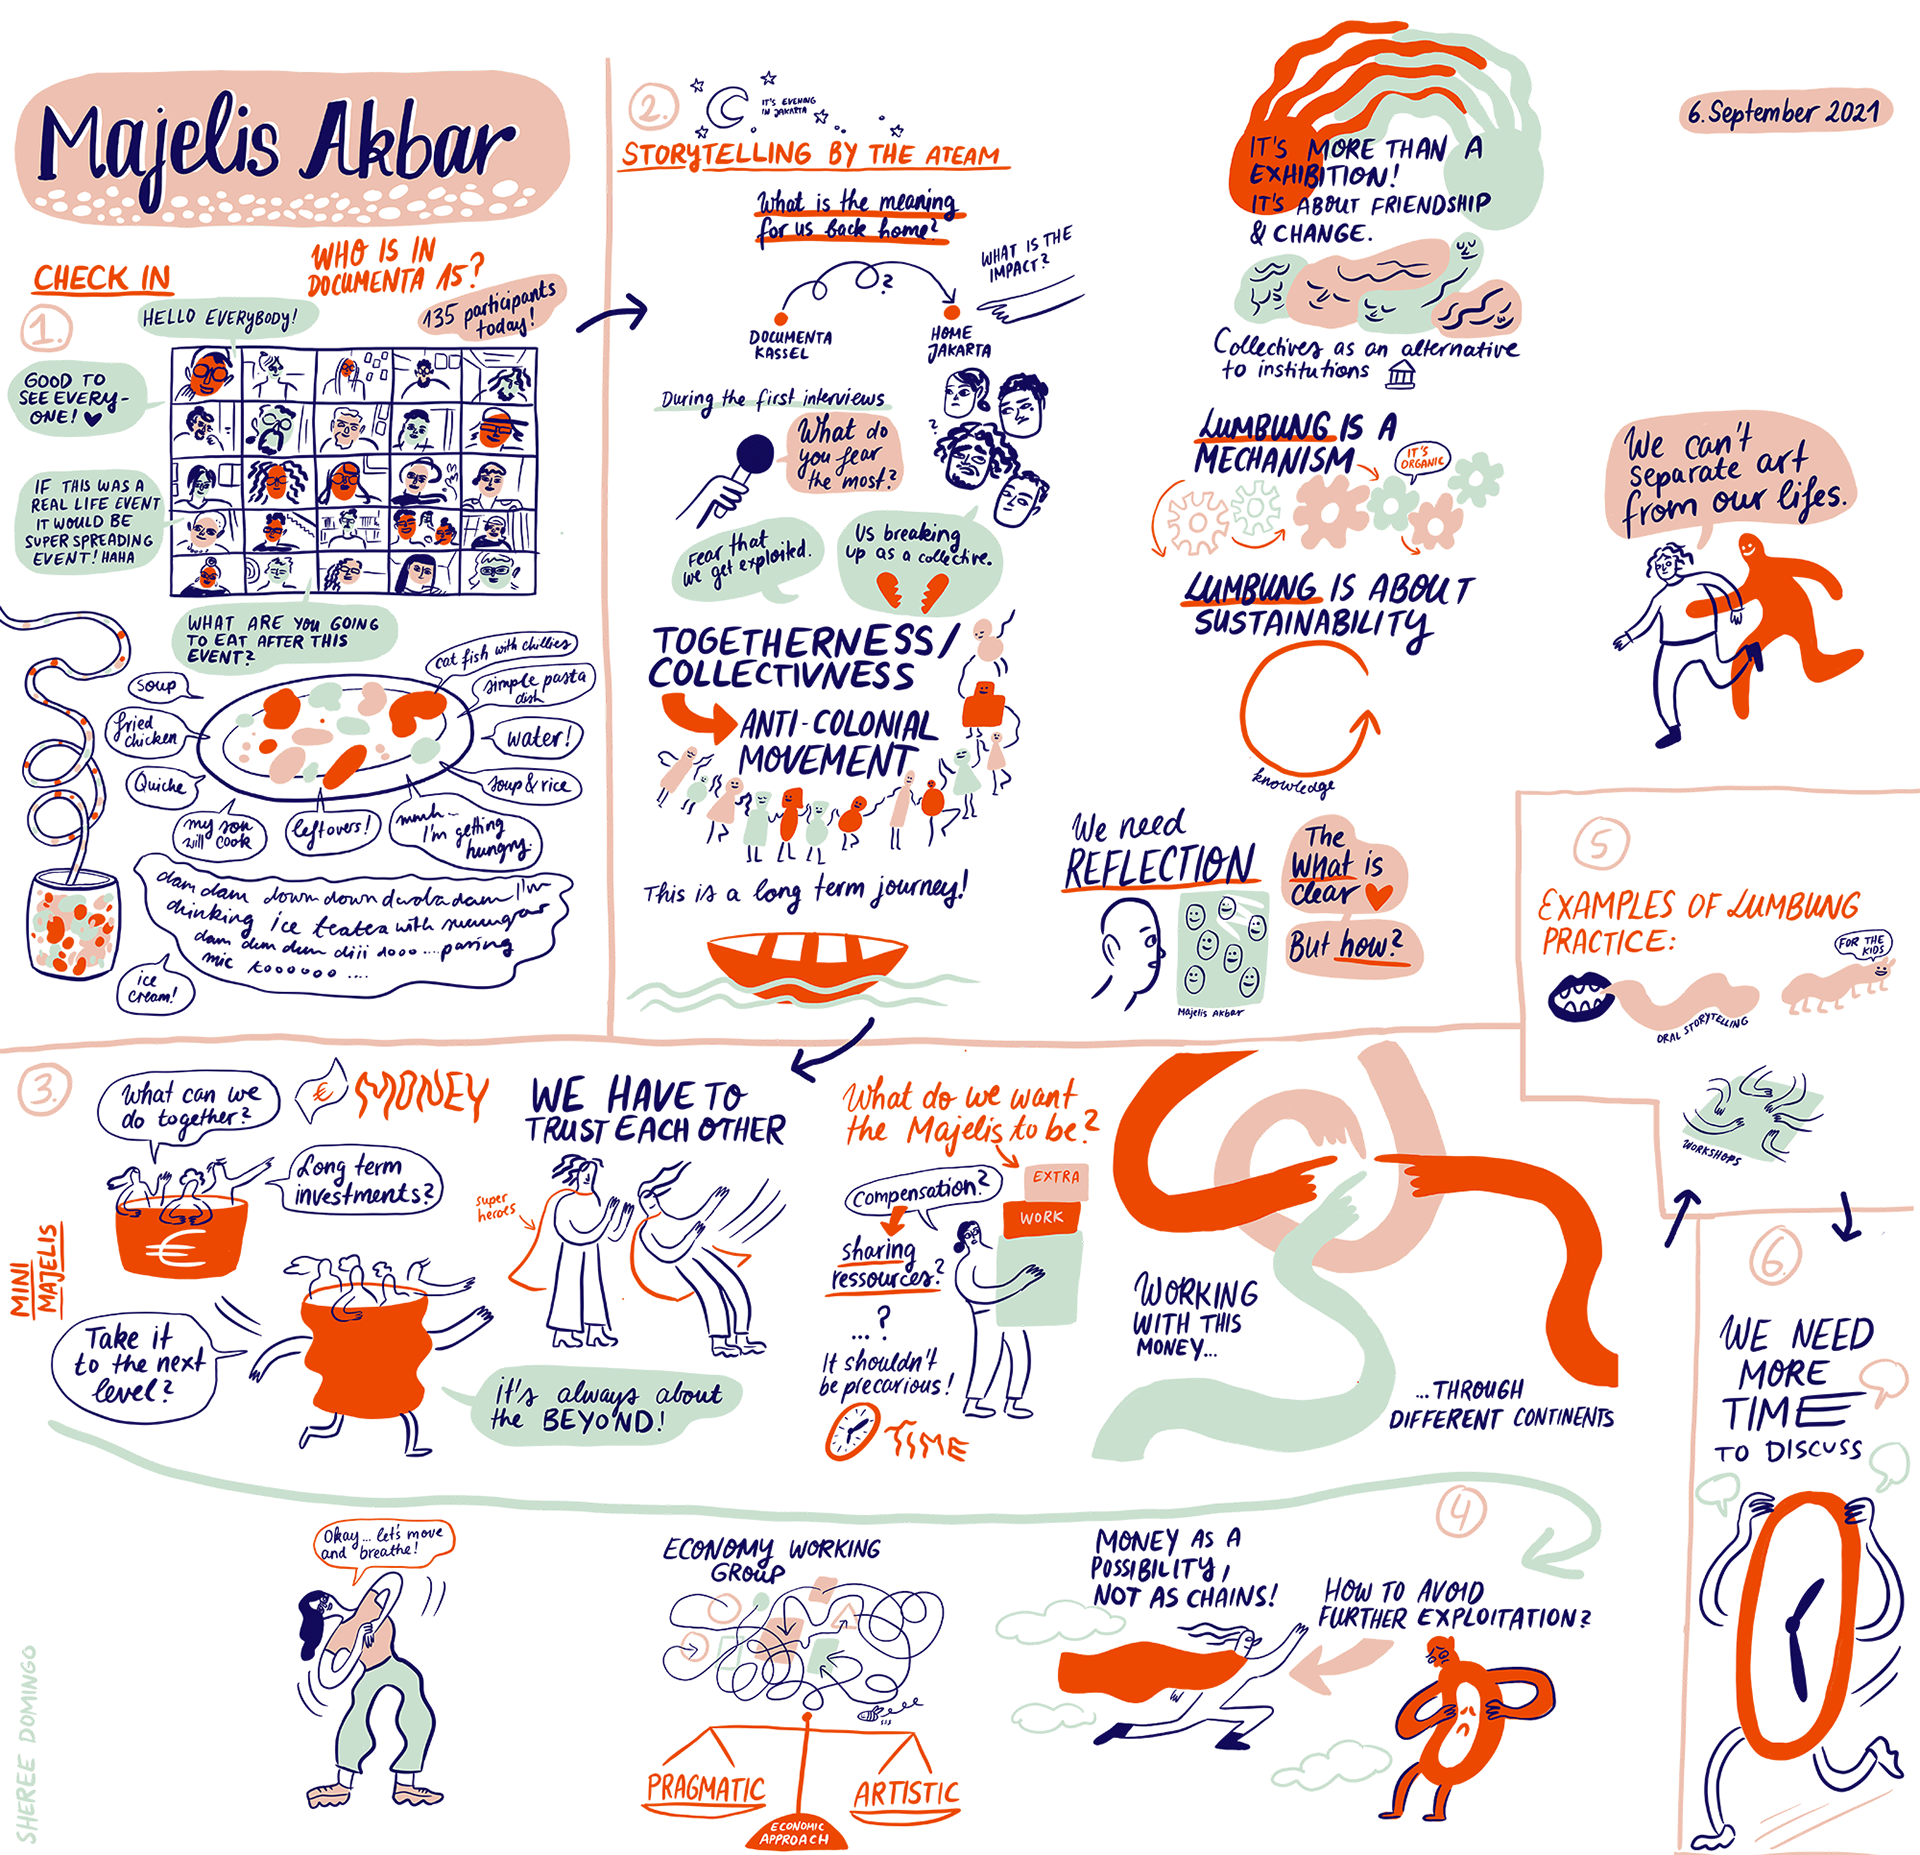 Majelis Akbar
6. September 2021
CHECK IN
WHO IS IN
DOCUMENTA 15?
135 participants
today!
1.
HELLO EVERYBODY!
GOOD TO
SEE EVERY-
ONE!
IF THIS WAS A
REAL LIFE EVENT
IT WOULD BE
SUPER SPREADING
EVENT! HAHA
WHAT ARE YOU GOING
TO EAT AFTER THIS
EVENT?
soup
fried
chicken
Quiche
my son
will cook
leftovers!
mmh...
I'm getting
hungry.
soup & rice
water!
simple pasta
dish
cat fish with chillies
dam dam down down dwoladam I'm
drinking ice teatea with
dam dum dum diii dooo .... passing
mic tooooooo ....
ice
cream!
2.
IT'S EVENING
IN JAKARTA
STORYTELLING BY THE ATEAM
What is the meaning
for us back home?
WHAT IS THE
IMPACT?
?
DOCUMENTA
KASSEL
HOME
JAKARTA
During the first interviews
What do
you fear
the most?
?
Fear that
we get exploited.
Us breaking
up as a collective.
TOGETHERNESS/
COLLECTIVNESS
ANTI-COLONIAL
MOVEMENT
This is a long term journey!
IT'S MORE THAN A
EXHIBITION!
IT'S ABOUT FRIENDSHIP
& CHANGE.
Collectives as an alternative
to institutions
LUMBUNG IS A
MECHANISM
IT'S
ORGANIC
LUMBUNG IS ABOUT
SUSTAINABILITY
knowledge
We need
REFLECTION
Majelis Akbar
The
What is
clear
But how?
We can't
separate art
from our lifes.
3.
MINI
MAJELIS
What can we
do together?
€
MONEY
Long term
investments?
€
Take it
to the next
level?
WE HAVE TO
TRUST EACH OTHER
super
heroes
it's always about
the BEYOND!
What do we want
the Majelis to be?
EXTRA
WORK
compensation?
sharing
ressources?
...?
It shouldn't
be precarious!
TIME
WORKING
WITH THIS
MONEY...
...THROUGH
DIFFERENT CONTINENTS
4
Okay... let's move
and breathe!
ECONOMY WORKING
GROUP
PRAGMATIC
ARTISTIC
ECONOMIC
APPROACH
MONEY AS A
POSSIBILITY,
NOT AS CHAINS!
HOW TO AVOID
FURTHER EXPLOITATION?
5
EXAMPLES OF LUMBUNG
PRACTICE:
FOR THE
KIDS
ORAL STORYTELLING
WORKSHOPS
6.
WE NEED
MORE
TIME
TO DISCUSS
SHEREE DOMINGO